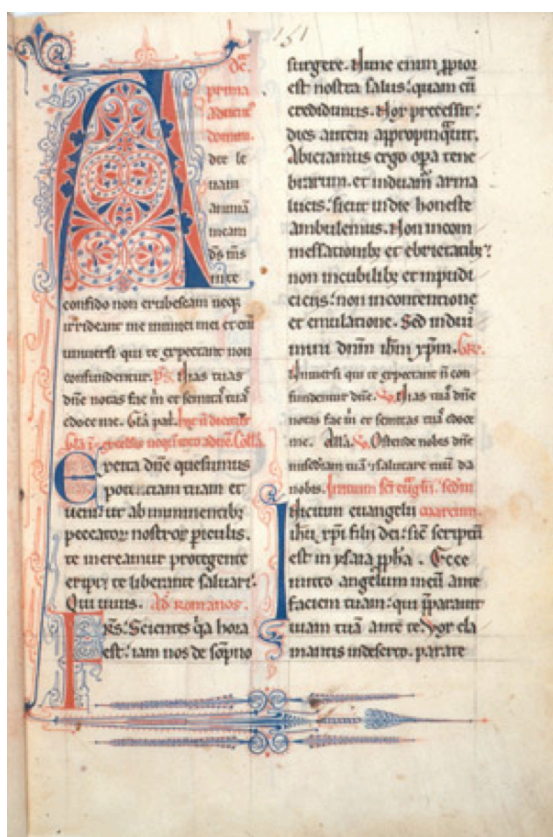 151
Dn̄ica
prima
aduentꝰ
domini.
Ad te le
uaui
animā
meam
ds̄ ms̄
in te
confido non erubescam neqꝫ
irrideant me inimici mei et eni
uniuersi qui te expectant non
confundentur. p̄s. Uias tuas
dn̄e notas fac m̄ et semitas tuas
edoce me. Gl̄a pat̄.
Excita dn̄e quesumus
potentiam tuam et
ueni. ut ab imminentibꝫ
peccatoꝝ nostroꝝ piculis.
te mereamur protegente
eripi. te liberante saluari.
Qui uiuis. Ad romanos.
Fr̄s. Scientes q̄a hora
est. iam nos de sōpno
surgere. Nunc enim ꝓpior
est nostra salus: quam cū
credidimus. Nox precessit:
dies autem appropinq̄uit.
Abiciamus ergo oꝑa tene
brarum. et induam̄ arma
lucis: sicut in die honeste
ambulemus. Non in com
messationibꝫ et ebrietatibꝫ:
non in cubilibꝫ et inpudi
ciciis: non in contentione
et emulatione. Sed indui
mini dn̄m ih̄m xp̄m. Gr̄.
Uniuersi qui te expectant n̄ con
fundentur dn̄e. ℣. Uias tuas dn̄e
notas fac m̄ et semitas tuas edoce
me. All̄a. ℣. Ostende nobis dn̄e
mīsediam tuā ⁊ salutare tuū da
nobis. Initium sc̄i euᷓglii. sedm̄
Inicium euangelii marcum.
ihū xp̄i filii dei: sic̄ scriptū
est in ysaia ꝓpha. Ecce
mitto angelum meū ante
faciem tuam: qui p̄parauit
uiam tuā ante te. Uox cla
mantis in deserto. parate